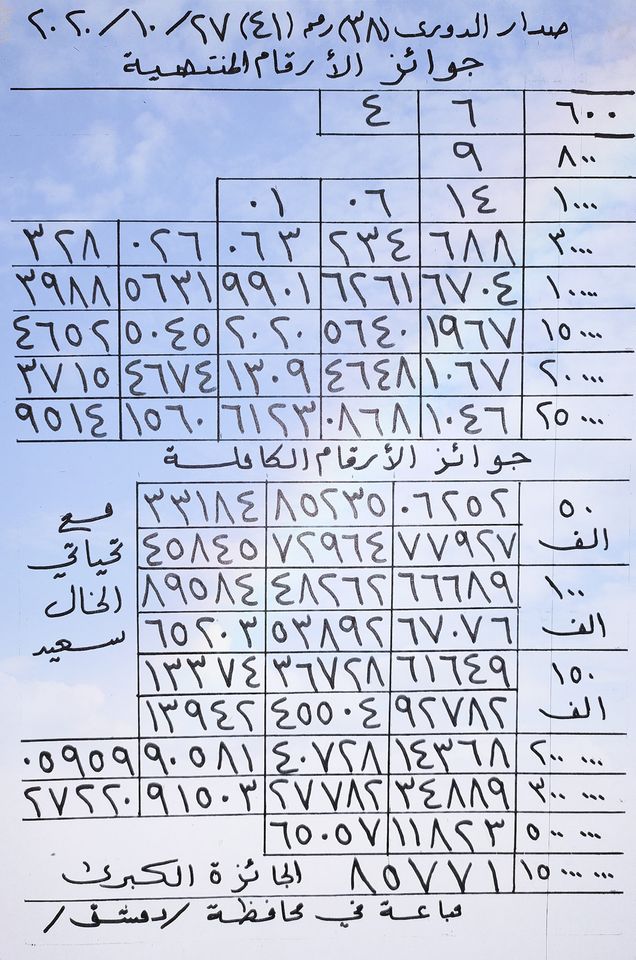 صدار الدورى (٣٨) رقم (٤١) ٢٧/١٠/٢٠٢٠
جوائز الأرقام المنتهية
٦٠٠ ٦ ٤
٨٠٠ ٩
١٠٠٠ ١٤ ٠٦ ٠١
٣٠٠٠ ٦٨٨ ٢٣٤ ٠٦٣ ٠٢٦ ٣٢٨
١٠٠٠٠ ٦٧٠٤ ٦٢٦١ ٩٩٠١ ٥٦٣١ ٣٩٨٨
١٥٠٠٠ ١٩٦٧ ٥٦٤٠ ٢٠٢٠ ٥٠٤٥ ٤٦٥٢
٢٠٠٠٠ ١٠٦٧ ٤٦٤٨ ١٣٠٩ ٤٦٧٤ ٣٧١٥
٢٥٠٠٠ ١٠٤٦ ٠٨٦٨ ٦١٢٣ ١٥٦٠ ٩٥١٤
جوائز الأرقام الكاملة
٥٠ ٠٦٢٥٢ ٨٥٢٣٥ ٣٣١٨٤
الف ٧٧٩٢٧ ٧٢٩٦٤ ٤٥٨٤٥
١٠٠ ٦٦٦٨٩ ٤٨٢٦٢ ٨٩٥٨٤
الف ٦٧٠٧٦ ٥٣٨٩٢ ٦٥٢٠٣
١٥٠ ٦١٦٤٩ ٣٦٧٢٨ ١٣٣٧٤
الف ٩٢٧٨٢ ٤٥٥٠٤ ١٣٩٤٢
مع
تحياتي
الخال
سعيد
٢٠٠ ٠٠٠ ١٤٣٦٨ ٤٠٧٢٨ ٩٠٥٨١ ٠٥٩٥٩
٣٠٠ ٠٠٠ ٣٤٨٨٩ ٢٧٧٨٢ ٩١٥٠٣ ٢٧٢٢٠
٥٠٠ ٠٠٠ ١١٨٢٣ ٦٥٠٥٧
١٥ ٠٠٠ ٠٠٠ ٨٥٧٧١ الجائزة الكبرى
مباعة في محافظة /دمشق/